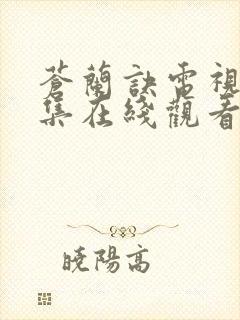 蒼蘭訣電視
集在綫觀看
曉陽高